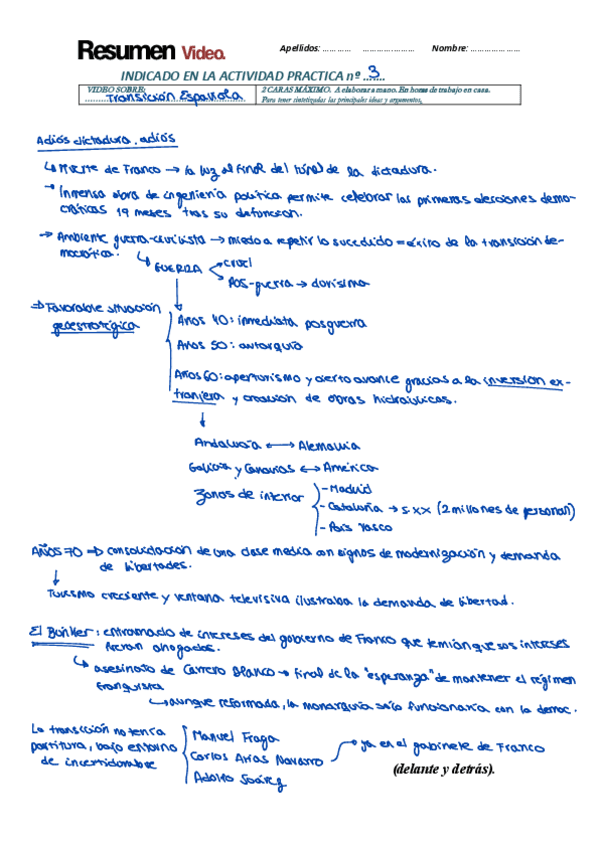 Resumen Video.
Apellidos: ............ ..................... Nombre: .....................
INDICADO EN LA ACTIVIDAD PRACTICA nº ..3....
VIDEO SOBRE: Transición Española
2 CARAS MÁXIMO. A elaborar a mano. En horas de trabajo en casa.
Para tener sintetizadas las principales ideas y argumentos.
Adiós dictadura, adiós
↳ Muerte de Franco → la luz al final del túnel de la dictadura.
→ Inmensa obra de ingeniería política permite celebrar las primeras elecciones demo-
cráticas 19 meses tras su defunción.
→ Ambiente guerra-civilista → miedo a repetir lo sucedido = éxito de la transición de-
mocrática.
↳ GUERRA
cruel
Pos-guerra → durísima
⇒ Favorable situación
geoestratégica
Años 40: inmediata posguerra
Años 50: autarquía
Años 60: aperturismo y cierto avance gracias a la inversión ex-
tranjera y creación de obras hidráulicas.
↓
Andalucía ↔ Alemania
Galicia y Canarias ↔ América
Zonas de interior
- Madrid
- Cataluña → s.XX (2 millones de personas)
- País Vasco
AÑOS 70 ⇒ consolidación de una clase media con signos de modernización y demanda
de libertades.
↓
Turismo creciente y ventana televisiva ilustraba la demanda de libertad.
El Búnker: entramado de intereses del gobierno de Franco que temían que sus intereses
fueran ahogados.
↳ asesinato de Carrero Blanco → final de la "esperanza" de mantener el régimen
franquista
↳ aunque reformada, la monarquía solo funcionaría con la democ.
La transición no tenía
partitura, bajo entorno
de incertidumbre
Manuel Fraga
Carlos Arias Navarro → ya en el gabinete de Franco
Adolfo Suárez
(delante y detrás).